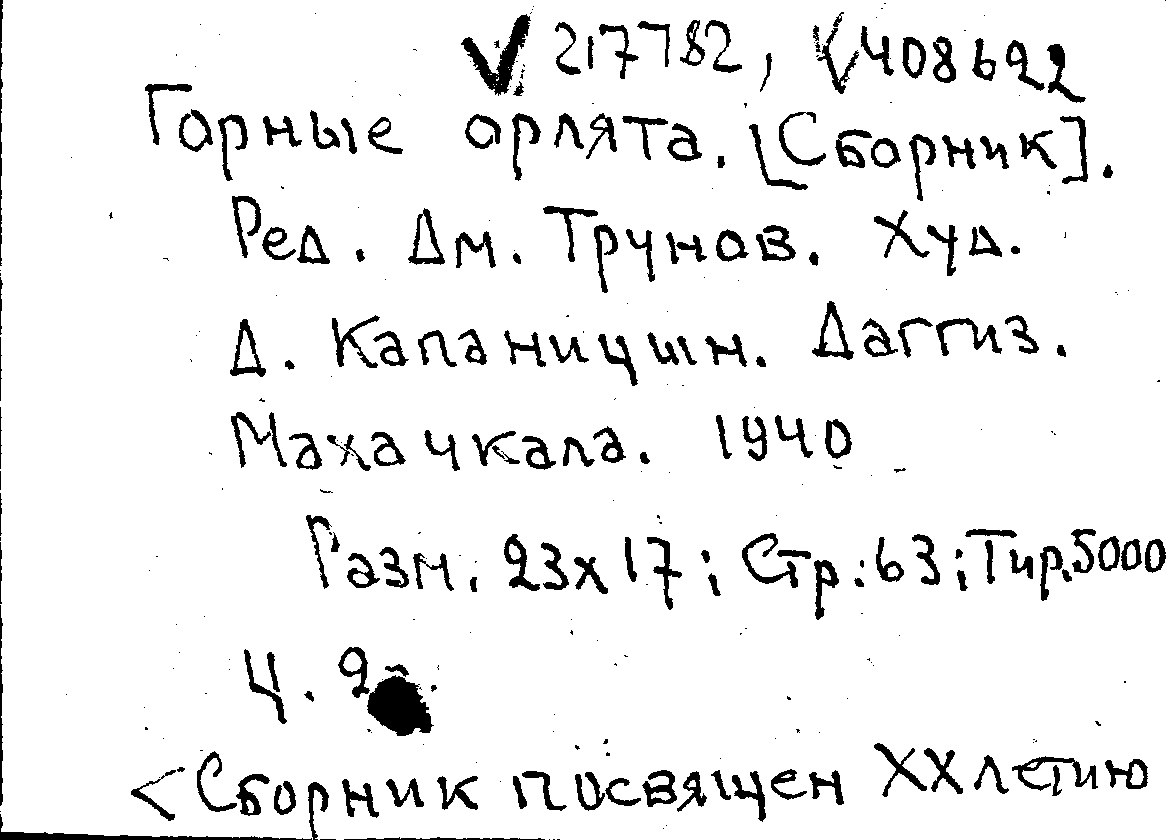 √ 217782, √408622
Горные орлята. [Сборник].
Ред. Дм. Трунов. Худ.
Д. Капаницин. Даггиз.
Махачкала. 1940
Разм. 23х17; Стр:63; Тир.5000
Ц. 2
<Сборник посвящен XXлетию